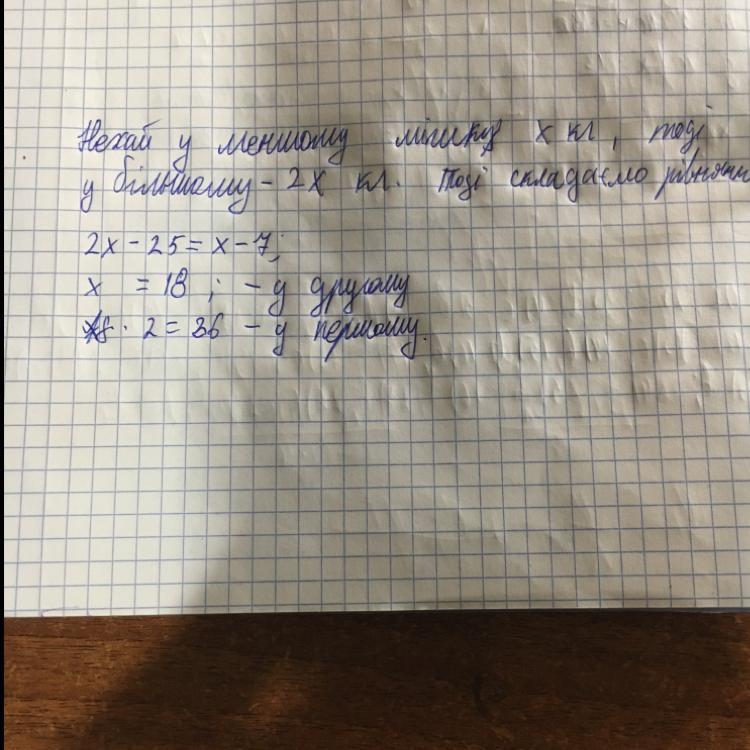 Нехай у меншому мішку x кг, тоді
у більшому - 2x кг. Тоді складаємо рівнян
2x - 25 = x - 7;
x = 18 ; - у другому
18 · 2 = 36 - у першому.